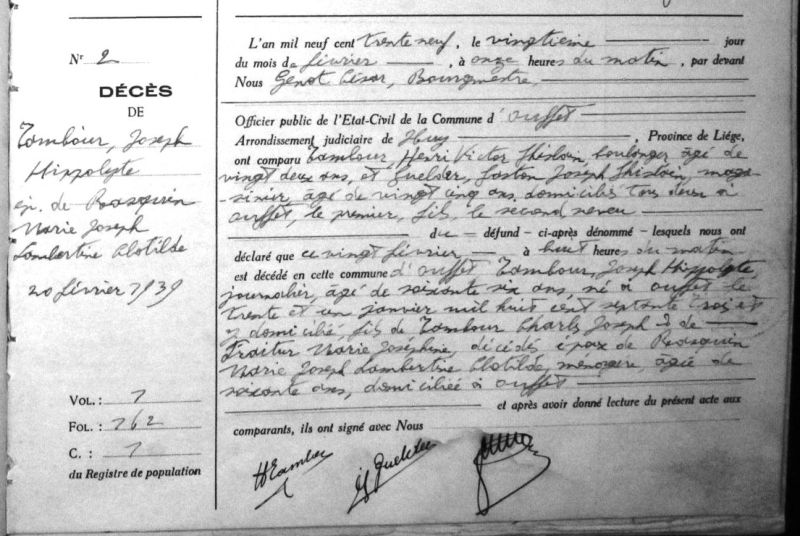 Nr 2
DÉCÈS
DE
Tambour, Joseph
Hippolyte
ép. de
Marie Joseph
Lambertine Clotilde
20 février 1939
VOL. : 1
FOL. : 162
C. : 1
du Registre de population
L'an mil neuf cent trente neuf, le vingtième jour
du mois de février, à onze heures du matin, par devant
Nous Genot César, Bourgmestre
Officier public de l'Etat-Civil de la Commune d'Ouffet
Arrondissement judiciaire de Huy, Province de Liége,
ont comparu Tambour, Henri Victor Ghislain, boulanger âgé de
vingt deux ans, et Gueldre, Gaston Joseph Ghislain, maga-
sinier, âgé de vingt cinq ans, domiciliés tous deux à
Ouffet, le premier, fils, le second neveu
du – défunt – ci-après dénommé – lesquels nous ont
déclaré que ce vingt février à huit heures du matin
est décédé en cette commune d'Ouffet Tambour, Joseph Hippolyte
journalier, âgé de soixante six ans, né à Ouffet le
trente et un janvier mil huit cent septante trois et
y domicilié, fils de Tambour Charles Joseph & de
Marie Joséphine, décédés, époux de
Marie Joseph Lambertine Clotilde, ménagère, âgée de
soixante ans, domiciliée à Ouffet
et après avoir donné lecture du présent acte aux
comparants, ils ont signé avec Nous